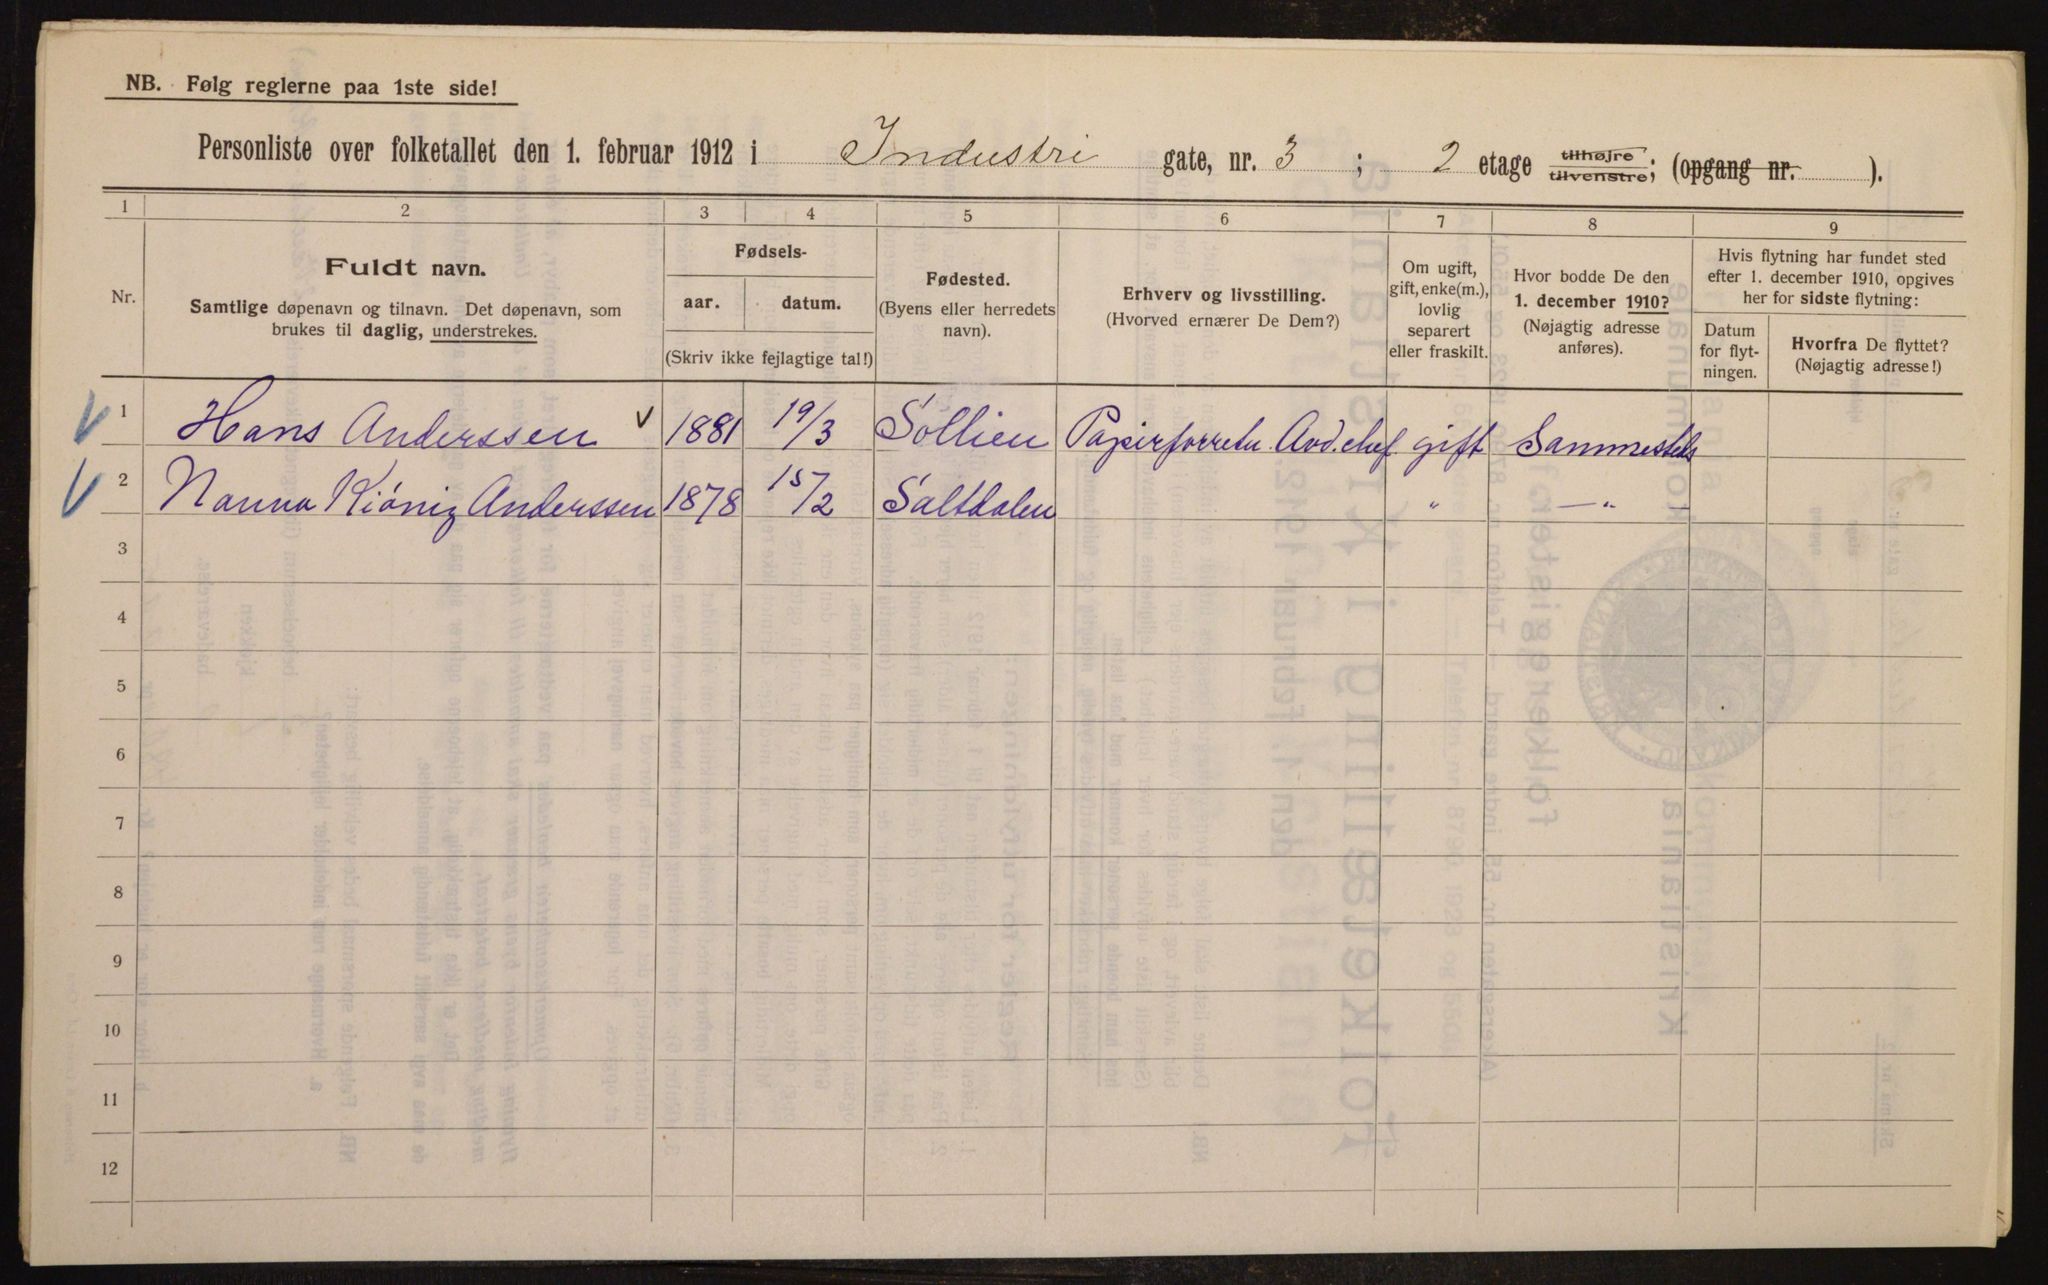 NB. Følg reglerne paa 1ste side!
Personliste over folketallet den 1. februar 1912 i Industri gate, nr. 3 ; 2 etage tilhøjre tilvenstre; (opgang nr. ).
1 2 3 4 5 6 7 8 9
Nr.
Fuldt navn.
Samtlige døpenavn og tilnavn. Det døpenavn, som
brukes til daglig, understrekes.
Fødsels-
aar. datum.
(Skriv ikke fejlagtige tal!)
Fødested.
(Byens eller herredets
navn).
Erhverv og livsstilling.
(Hvorved ernærer De Dem?)
Om ugift,
gift, enke(m.),
lovlig
separert
eller fraskilt.
Hvor bodde De den
1. december 1910?
(Nøjagtig adresse
anføres).
Hvis flytning har fundet sted
efter 1. december 1910, opgives
her for sidste flytning:
Datum
for flyt-
ningen.
Hvorfra De flyttet?
(Nøjagtig adresse!)
1 Hans Anderssen 1881 19/3 Sollien Papirforretn. Avd.chef gift Sammesteds
2 Nanna Kiönig Anderssen 1878 15/2 Saltdalen " — "
3
4
5
6
7
8
9
10
11
12